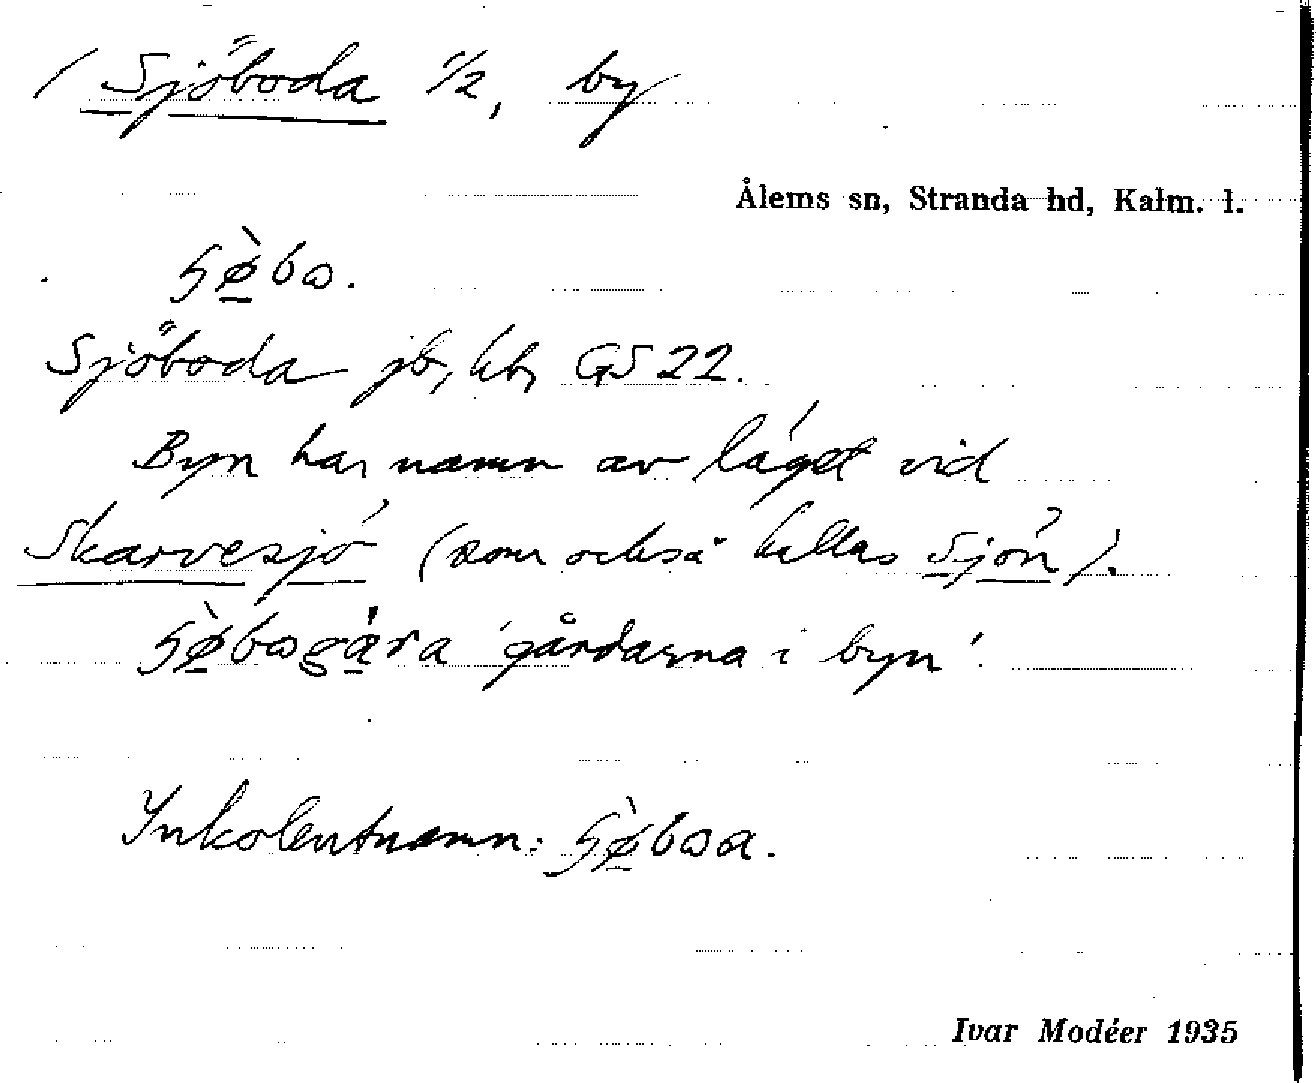 / Sjöboda 1/2, by
Ålems sn, Stranda hd, Kalm. l.
Sjöboda jb, kb, GS 22.
Byn har namn av läget vid
Skarvesjö (som också kallas Sjön).
'gårdarna i byn'.
Inkolentnamn:
Ivar Modéer 1935